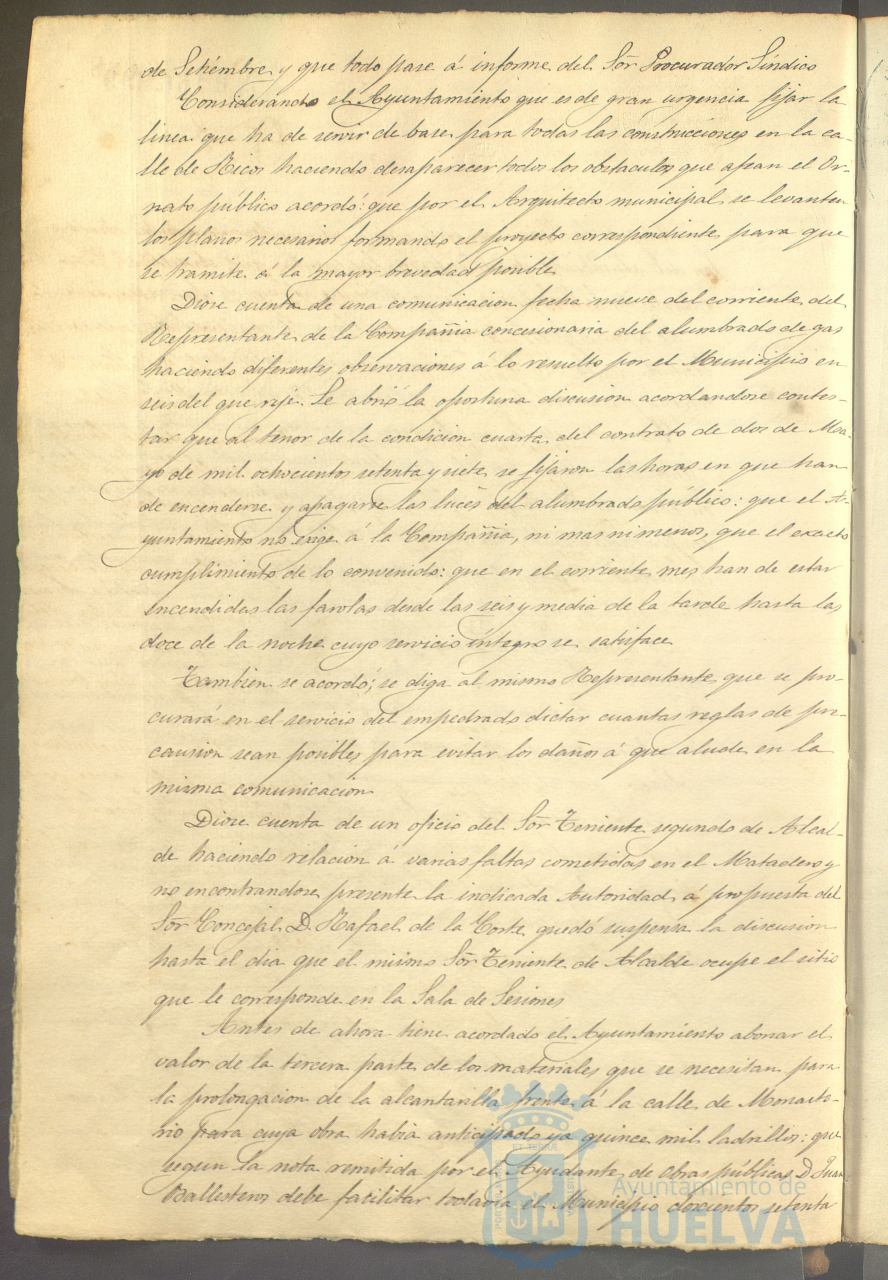 de Setiembre y que todo pase á informe del Sor Procurador Síndico
Considerando el Ayuntamiento que es de gran urgencia fijar la
linea que ha de servir de base para todas las construcciones en la ca-
lle de Ricos haciendo desaparecer todos los obstaculos que afean el Or-
nato público acordó: que por el Arquitecto municipal se levanten
los planos necesarios formando el proyecto correspondiente para que
se tramite á la mayor brevedad posible
Diose cuenta de una comunicacion fecha nueve del corriente del
Representante de la Compañia concesionaria del alumbrado de gas
haciendo diferentes observaciones á lo resuelto por el Municipio en
seis del que rije. Se abrió la oportuna discusion acordandose contes-
tar que al tenor de la condicion cuarta del contrato de dos de Ma-
yo de mil ochocientos setenta y siete se fijaron las horas en que han
de encenderse y apagarse las luces del alumbrado público: que el A-
yuntamiento no exige á la Compañia, ni mas ni menos, que el exacto
cumplimiento de lo convenido: que en el corriente mes han de estar
encendidas las farolas desde las seis y media de la tarde hasta las
doce de la noche cuyo servicio íntegro se satisface
Tambien se acordó; se diga al mismo Representante que se pro-
curará en el servicio del empedrado dictar cuantas reglas de pre-
causion sean posibles para evitar los daños á que alude en la
misma comunicación
Diose cuenta de un oficio del Sor Teniente segundo de Alcal-
de haciendo relación á varias faltas cometidas en el Matadero y
no encontrandose presente la indicada Autoridad á propuesta del
Sor Concejal D. Rafael de la Corte quedó suspensa la discusion
hasta el dia que el mismo Sor Teniente de Alcalde ocupe el sitio
que le corresponde en la Sala de Sesiones
Antes de ahora tiene acordado el Ayuntamiento abonar el
valor de la tercera parte de los materiales que se necesitan para
la prolongacion de la alcantarilla frente á la calle de Monaste-
rio para cuya obra habia anticipado ya quince mil ladrillos: que
segun la nota remitida por el Ayudante de obras públicas D Juan
Ballesteros debe facilitar todavia el Municipio doscientos setenta
Ayuntamiento de
HUELVA